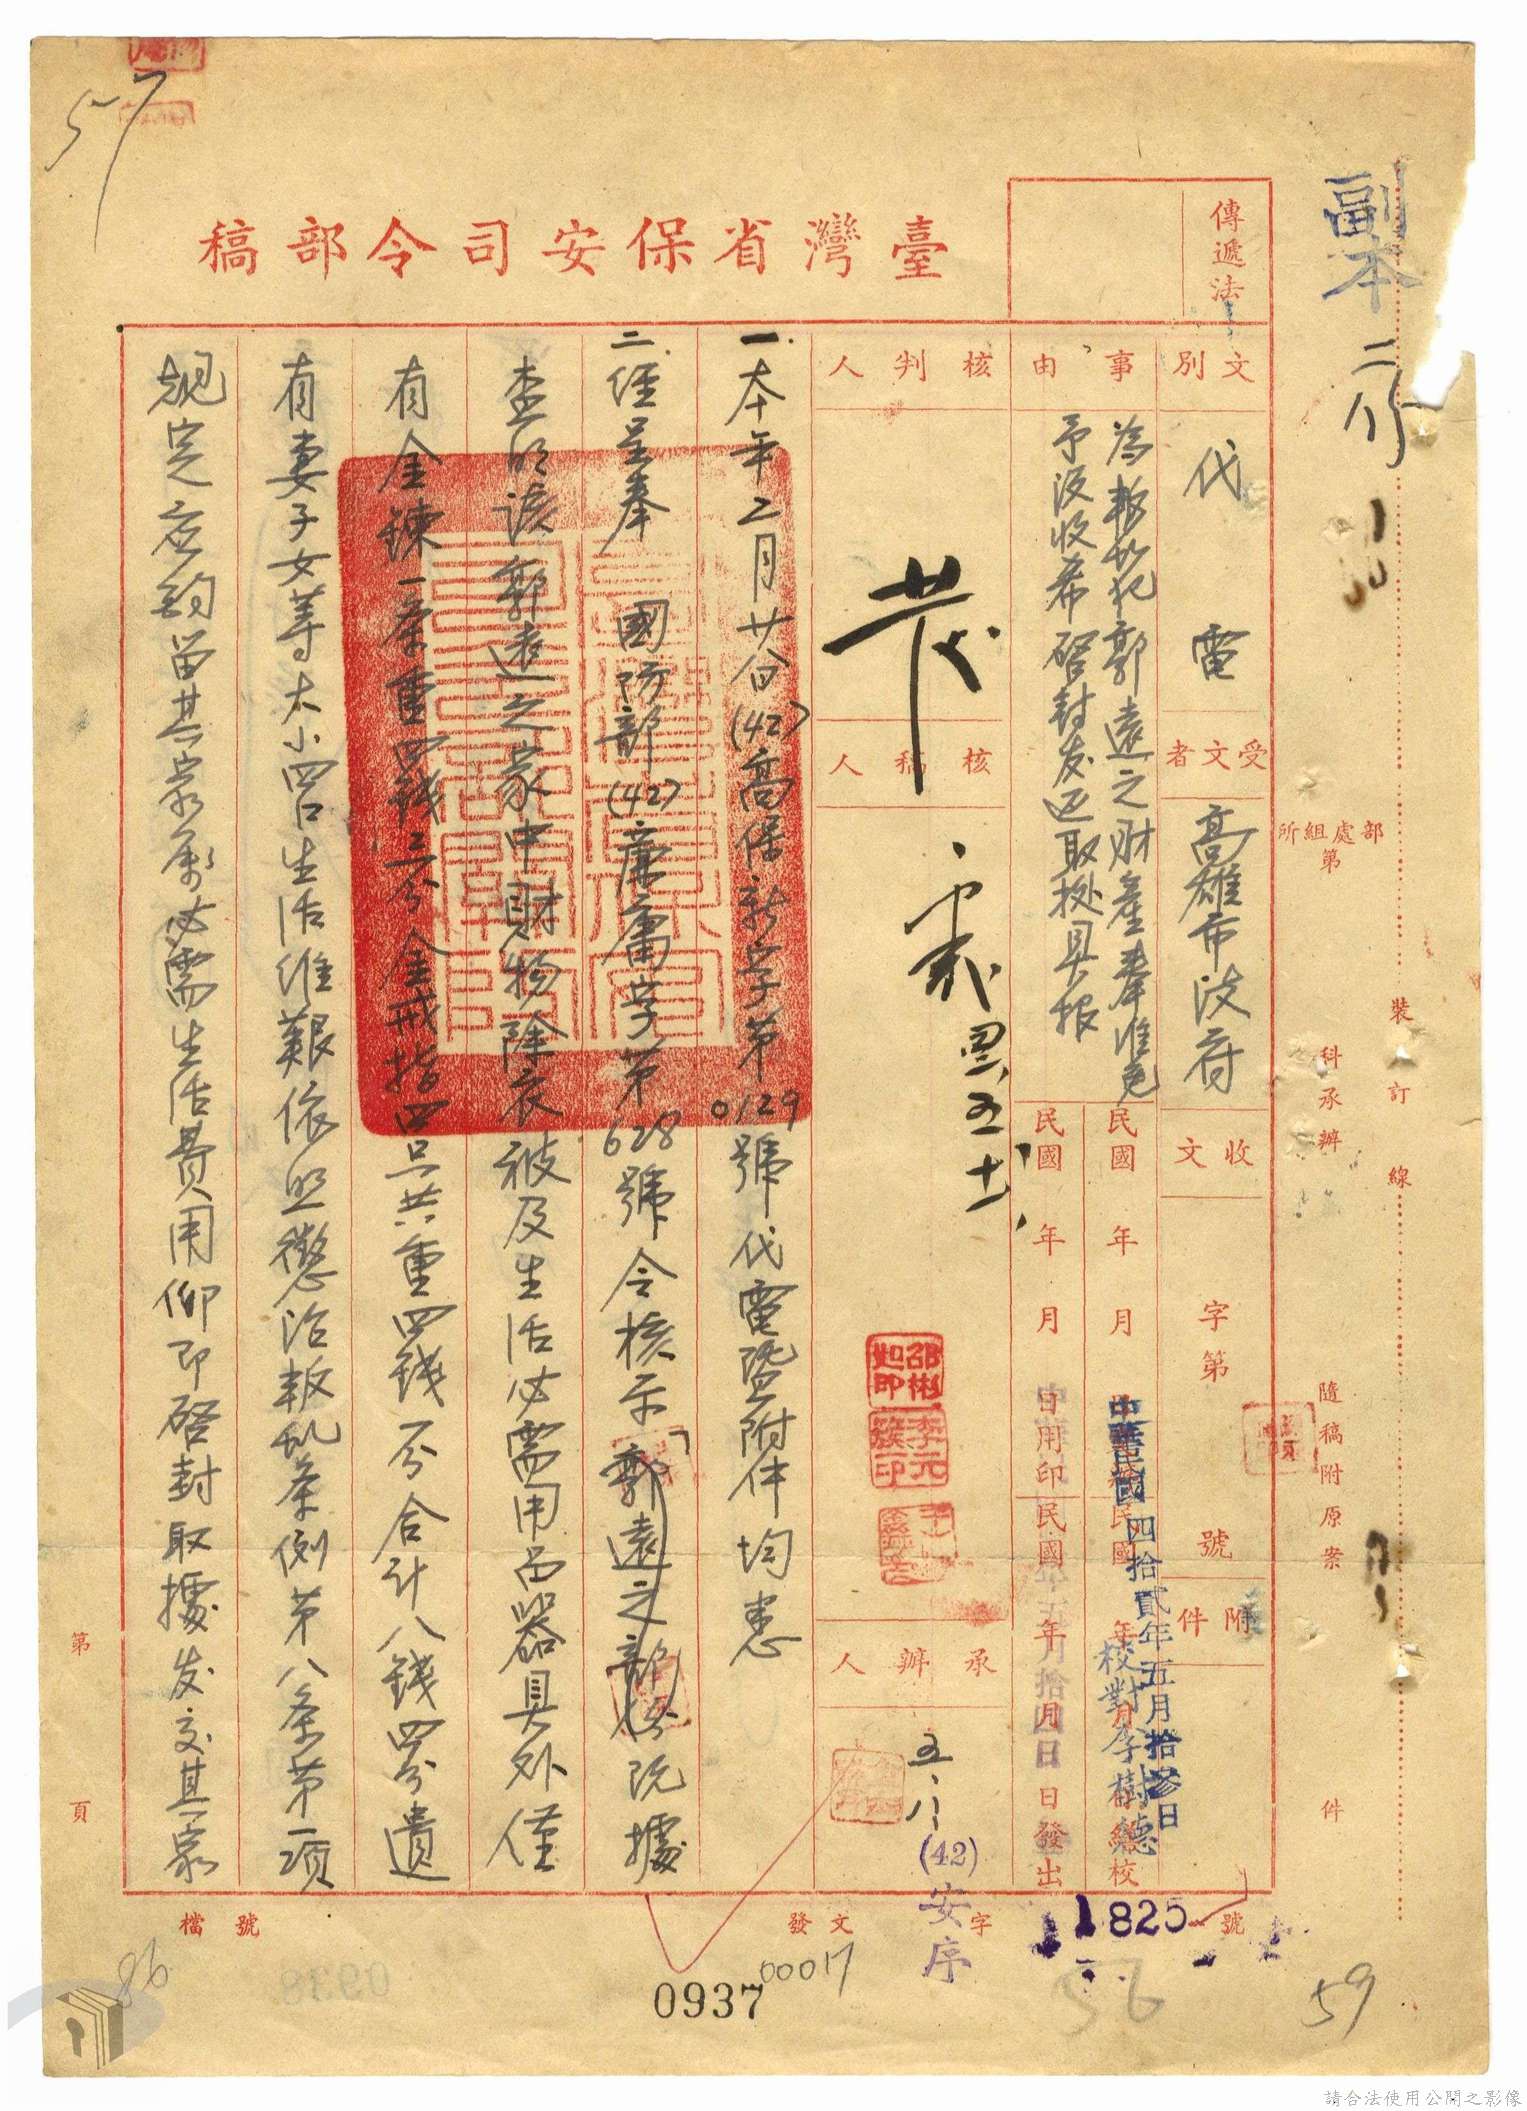 副本
二份
傳遞法
臺灣省保安司令部稿
文別
代電
受文者
高雄市政府
收文
字第
號
附件
事由
為叛亂犯郭遠之財產奉准免
予沒收希啓封发还取据具报
民國年月日
中華民國四拾貳年五月拾叁日
校對李樹德
繕校
民國年月日用印
民國年月日發出
核判人
核稿人
五士
承辦人
五、八
邵彬如印
李元簇印
一、本年二月廿日(42)高保新字第0129號代電暨附件均悉
二、經呈奉 國防部(42)廉庸字第628號令核示「郭遠之部份既據
查明該郭遠之家中財物除衣被及生活必需用品器具外僅
有金鍊一条重四錢三分金戒指四只共重四錢一分合計八錢四分遺
有妻子女等大小四口生活維艱依照懲治叛乱条例第八条第一項
規定应酌留其家屬必需生活費用仰即啓封取據发交其家
部處組所
第
科承辦
隨稿附原案
件
裝訂線
第
頁
檔號
發文
(42)安序
字
1825
號
0937
00017
57
56
59
86
請合法使用公開之影像